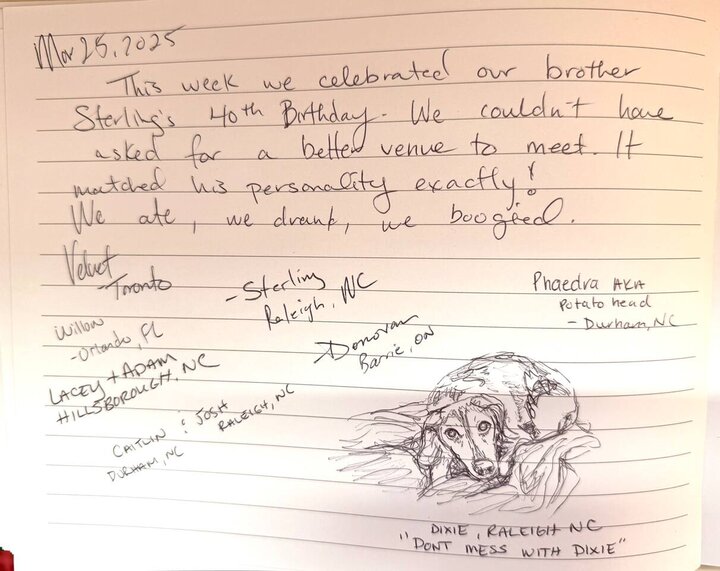 Mar 25, 2025
This week we celebrated our brother
Sterling's 40th Birthday. We couldn't have
asked for a better venue to meet. It
matched his personality exactly!
We ate, we drank, we boogied.
Velvet
- Toronto
- Sterling
Raleigh, NC
Phaedra AKA
Potato head
- Durham, NC
Willow
- Orlando, FL
- Donovan
Barrie, ON
LACEY + ADAM
HILLSBOROUGH, NC
CAITLIN & JOSH
DURHAM, NC
RALEIGH, NC
DIXIE, RALEIGH NC
"DONT MESS WITH DIXIE"